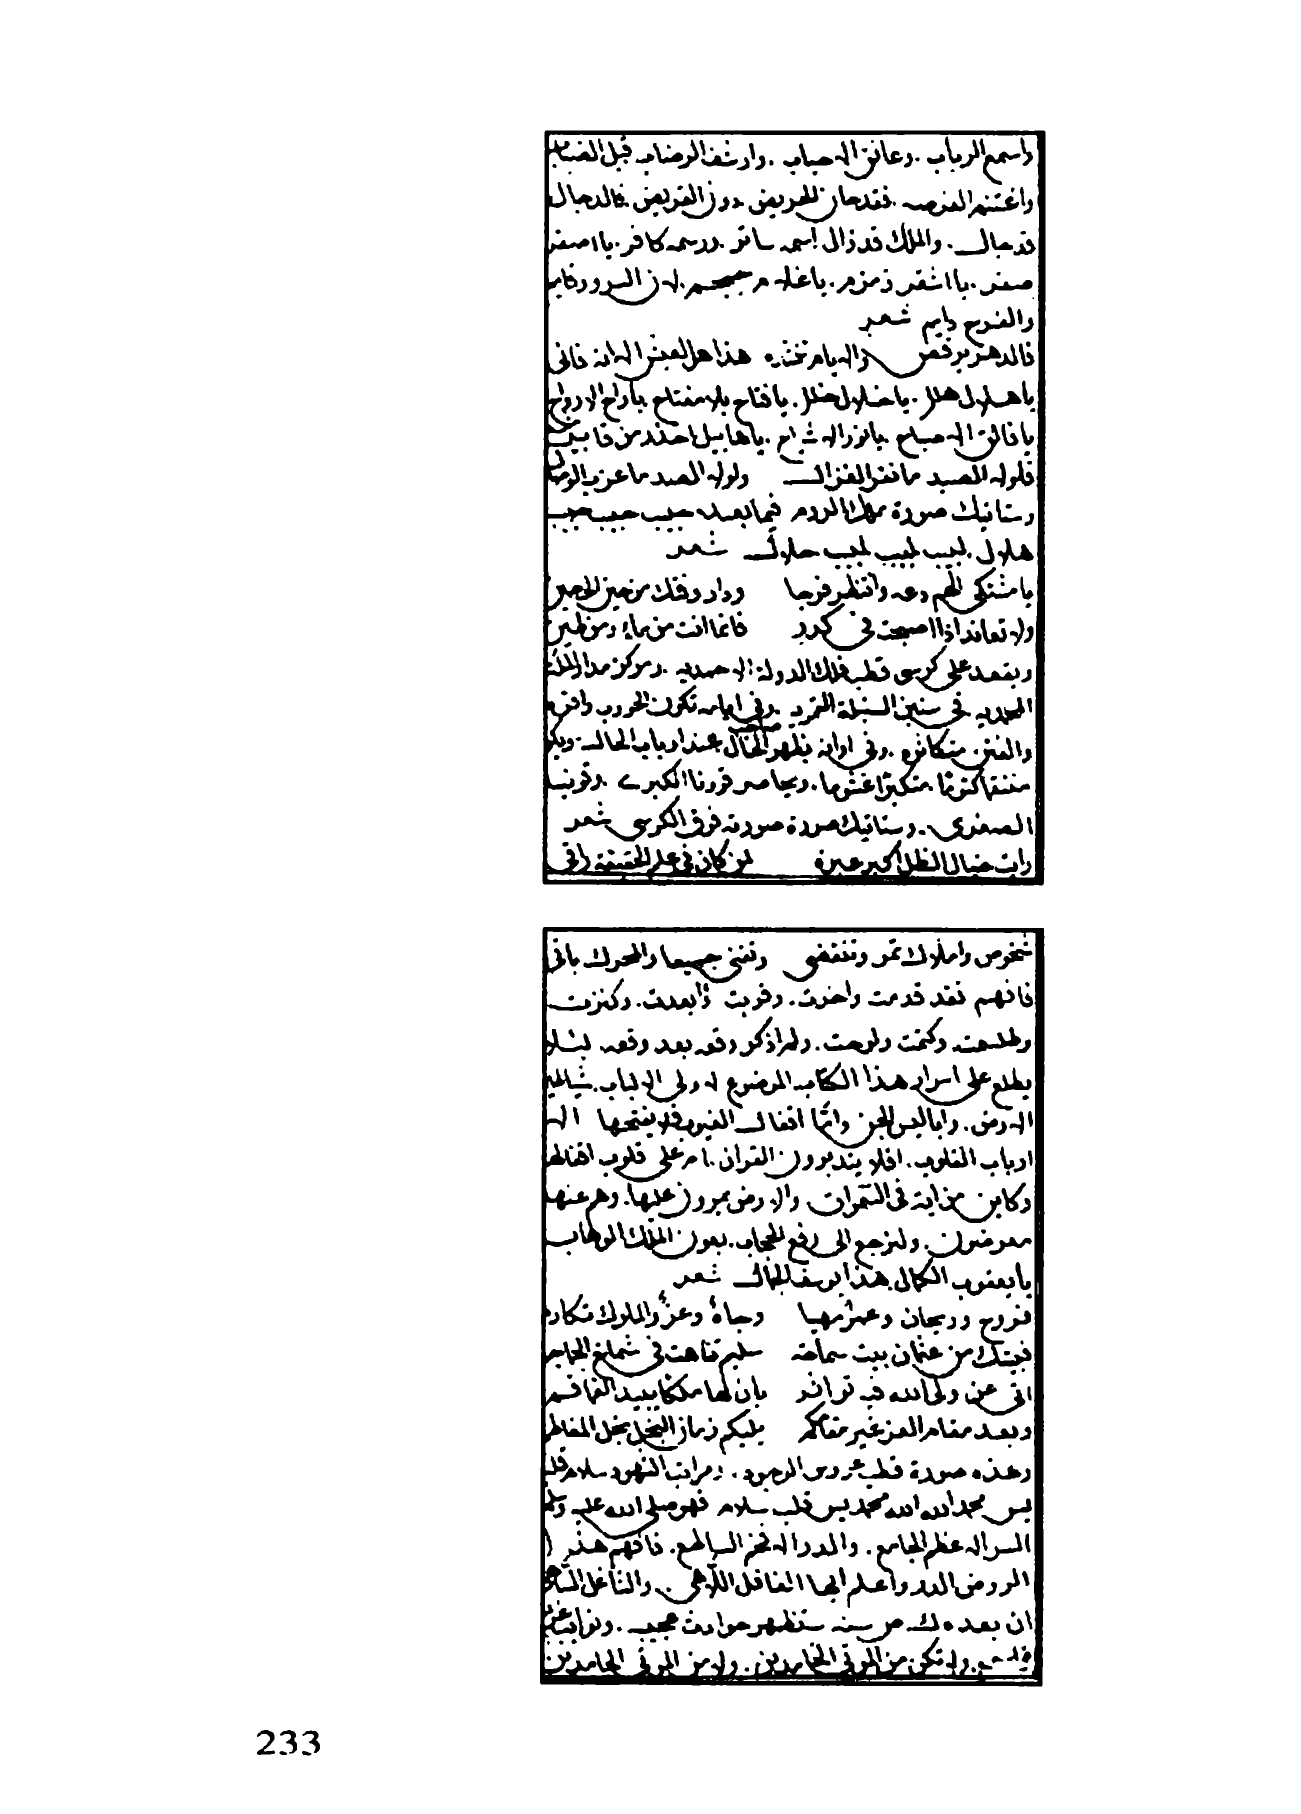 واسمع الرباب . وعانق الاحباب . وارشف الرضاب قبل
واغتنم الفرصه . فقد حان الحريض دون القريض . فالدجال
قد جال . والملك قد زال اسمه سائر . ورسمه كافر . يا اصفر
صفر . يا اشقر زمزم . يا غلام جمجم . لان السرور
والفرح دايم شعر
فالدهر يرقص والايام تخنثه هذا هو العيش الا انه فانى
يا هلال هلل . يا ضلال ضلل . يا فتاح بلا مفتاح يا راح الارواح
يا فالق الاصباح . يا نور الاشباح . يا هابيل احذر من قابيل
فلولا الصيد ما نفر الغزال ولولا الصد ما عرف الوصال
وستاتيك صورة ملك الروم فيما بعد حبيب حبيب حبيب
هلال . لبيب لبيب لبيب حلال شعر
يا مشتكى الهم دعه وانتظر فرجا ودار وقتك من حين الى حين
ولا تعاند اذا اصبحت فى كدر فانما انت من ماء ومن طين
ويقعد على كرسى قطب فلك الدولة الاحمديه . ومركز مدار الملة
المحمديه فى سنين القمريه . وفى ايامه تكون الحروب
والفتن متكاثره . وفى اوانه يظهر صاحب الخال عند ارباب الحال .
متكبرا غشوما . ويحاصر قرونا الكبرى .
الصغرى . وستاتيك صورة صورته فوق الكرسى شعر
رايت خيال الظل اكبر عبرة لمن كان فى علم الحقيقة راقى
شخوص واملاك تمر وتنقضى وتفنى جميعا والمحرك باقى
فافهم فقد قدمت واخرت . وقربت وابعدت . وكنزت
وطلسمت وكتمت ولوحت . ولم اذكر وقعه بعد وقعه لئلا
يطلع على اسرار هذا الكتاب الموضوع لاولى الالباب . شياطين
الارض . وابالس الجن وانما اقفال الغيوب فلا يفتحها الا
ارباب القلوب . افلا يتدبرون القران . ام على قلوب اقفالها
وكاين من اية فى السموات والارض يمرون عليها . وهم عنها
معرضون . ولنرجع الى رفع الحجاب . بعون الملك الوهاب
يا يعقوب الكمال . هذا يوسف الجمال شعر
فروح وريحان وعمر مهيا وجاه وعز والملوك
فبيتك من عثمان بيت سماحة سليم
اتى عن ولى الله فيه تواتر بان لها ملكا
وبعد مقام العز غير مقامكم يليكم زمان
وهذه صورة قطب عروس الوجود . ومراتب الشهود سلام
يس محمد الله الله محمد يس قلب سلام فهو صلى الله عليه وسلم
السر الاعظم الجامع . والدر الافخر الساطع . فافهم هذر
الروض الدر واعلم ايها الغافل اللاهى . والشاغل الساهى
ان بعد ستظهر حوادث عجيبه .
ولا تكن من الموتى الخامدين . ولا من الموتى الجامدين
233